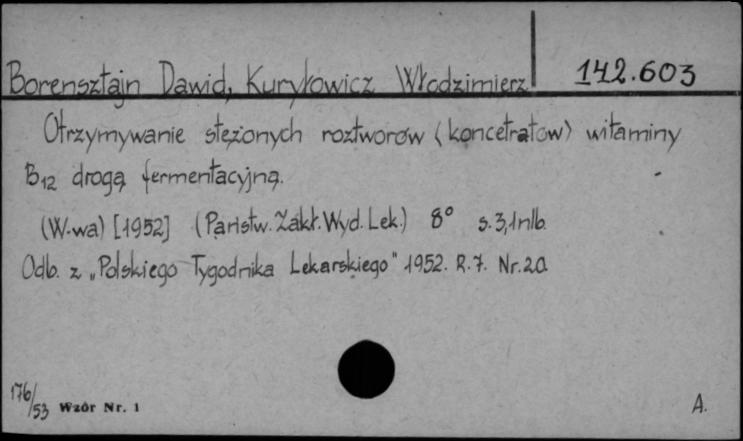 Borensztajn Dawid, Kuryłowicz Włodzimierz 142.603
Otrzymywanie stężonych roztworów (koncetratow) witaminy
B12 drogą fermentacyjną.
(W-wa) [1952] (Państw. Zakł. Wyd. Lek.) 8° s. 3, 1nlb.
Odb. z „Polskiego Tygodnika Lekarskiego" 1952. R. 7. Nr. 20
176/53 Wzór Nr. 1 A.